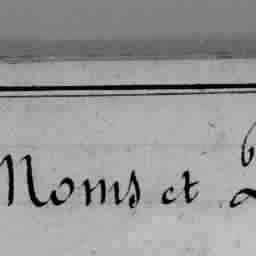 Moms et